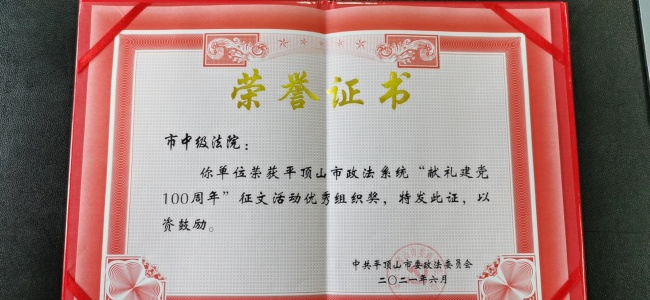 荣誉证书
市中级法院：
你单位荣获平顶山市政法系统“献礼建党
100周年”征文活动优秀组织奖，特发此证，以
资鼓励。
中共平顶山市委政法委员会
二〇二一年六月